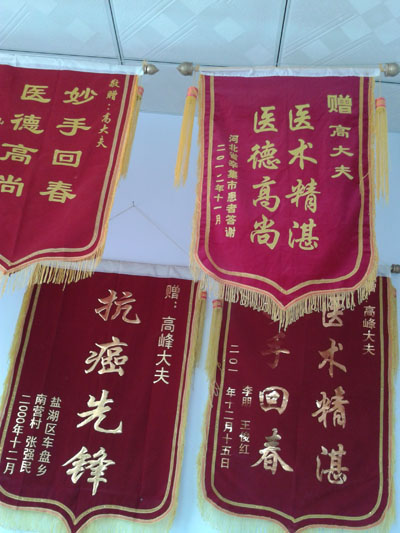 敬赠：高大夫
妙手回春
医德高尚
赠 高大夫
医术精湛
医德高尚
河北省辛集市患者答谢
二〇一一年十一月
赠：高峰大夫
抗癌先锋
盐湖区车盘乡
南营村 张强民
二000年十二月
高峰大夫
医术精湛
手回春
李朋 王俊红
二〇一 年十二月十五日